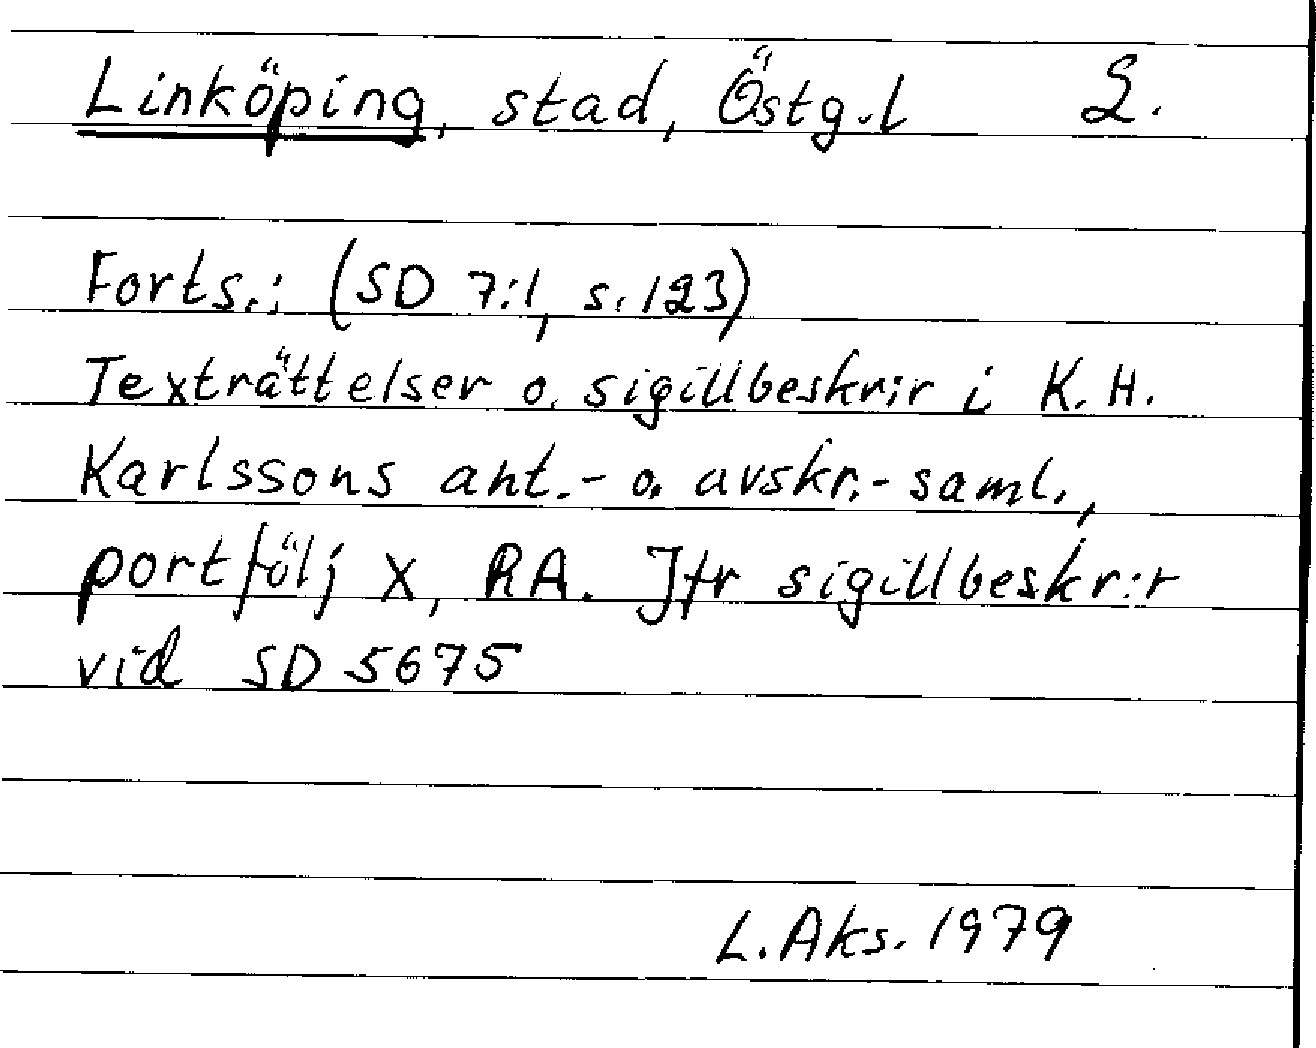 Linköping, stad, Östg.l 2.
Forts.: (SD 7:1, s. 123)
Texträttelser o. sigillbeskr:r i K. H.
Karlssons ant.- o. avskr.- saml.,
portfölj X, RA. Jfr sigillbeskr:r
vid SD 5675
L. Aks. 1979